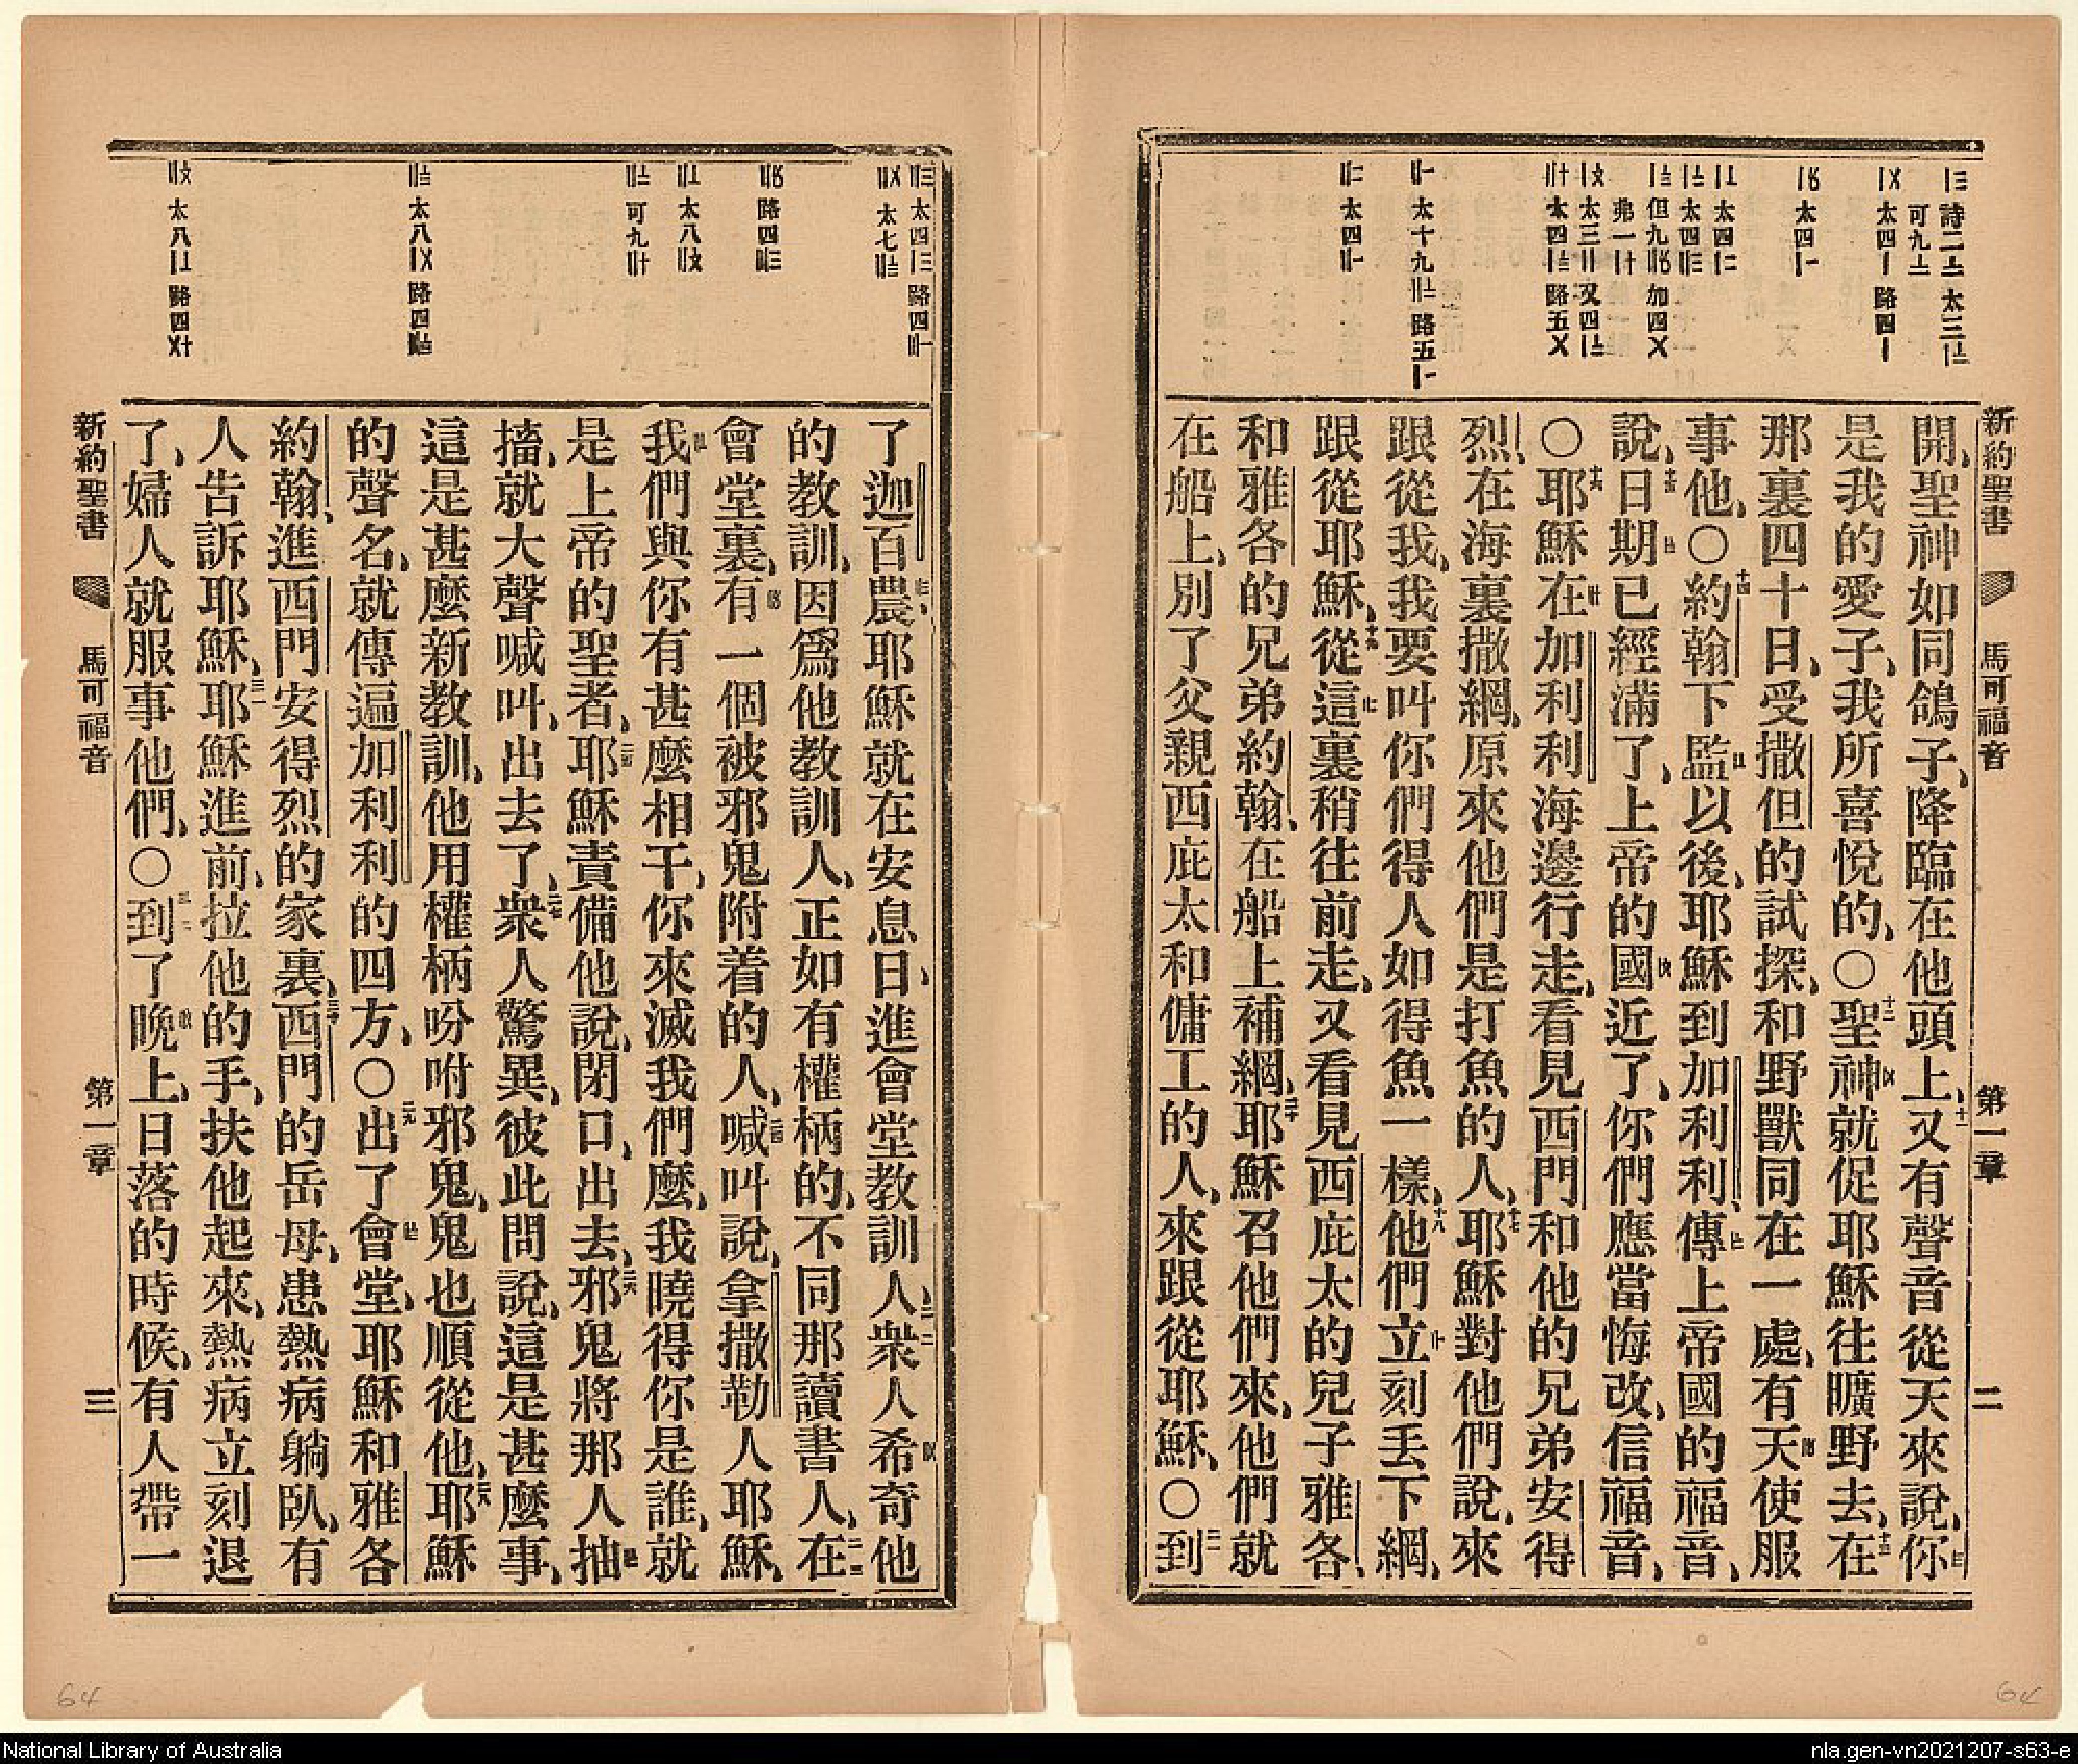 新約聖書 馬可福音 第一章 二
開、聖神如同鴿子、降臨在他頭上、十一又有聲音從天來說、你
是我的愛子、我所喜悅的、〇十二聖神就促耶穌往曠野去、十三在
那裏四十日、受撒但的試探、和野獸同在一處、有天使服
事他、〇十四約翰下監以後、耶穌到加利利、傳上帝國的福音、
說、十五日期已經滿了、上帝的國近了、你們應當悔改、信福音、
〇十六耶穌在加利利海邊行走、看見西門和他的兄弟安得
烈、在海裏撒網、原來他們是打魚的人、十七耶穌對他們說、來
跟從我、我要叫你們得人如得魚一樣、十八他們立刻丟下網、
跟從耶穌、十九從這裏稍往前走、又看見西庇太的兒子雅各、
和雅各的兄弟約翰、在船上補網、二十耶穌召他們來、他們就
在船上、別了父親西庇太和傭工的人、來跟從耶穌、〇二一到
了迦百農、耶穌就在安息日、進會堂教訓人、二二衆人希奇他
的教訓、因爲他教訓人、正如有權柄的、不同那讀書人、二三在
會堂裏、有一個被邪鬼附着的人、二四喊叫說、拿撒勒人耶穌、
我們與你有甚麼相干、你來滅我們麼、我曉得你是誰、就
是上帝的聖者、二五耶穌責備他說、閉口、出去、二六邪鬼將那人抽
搐、就大聲喊叫、出去了、二七衆人驚異、彼此問說、這是甚麼事、
這是甚麼新教訓、他用權柄吩咐邪鬼、鬼也順從他、二八耶穌
的聲名、就傳遍加利利的四方、〇二九出了會堂、耶穌和雅各
約翰、進西門安得烈的家裏、三十西門的岳母、患熱病躺臥、有
人告訴耶穌、三一耶穌進前、拉他的手、扶他起來、熱病立刻退
了、婦人就服事他們、〇三二到了晚上、日落的時候、有人帶一
新約聖書 馬可福音 第一章 三
64
64
National Library of Australia
nla.gen-vn2021207-s63-e